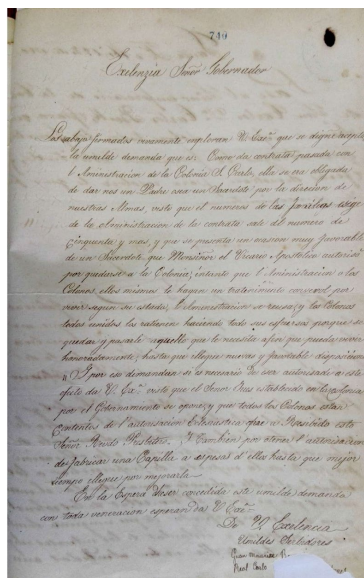 740
Exilenzia Señor Gobernador
Los abajo formados veramente imploran V. Exª que se digne acepta
la umilde demanda que es. Come da contrata pasada con
l'Aministracion de la Colonia S. Carlo, ella se ha obligada
de dar nos un Padre osia un Sacerdote por la direcion de
nuestras Almas, visto que el numero de las familias
de la aministracion de la contrata sale del numero de
cinquenta y mas, y que se presenta un favorable
de un Sacerdote, que Monseñor el Vicario Apostolico autorisó
por quedarse a la Colonia; intanto que l'Aministracion o los
Colonos, ellos mismos le hagen un tratamiento por
vivir segun su estado, l'Aministracion se recusa; y los Colonos
todos unidos los haciendo todo sus esfuersos porque
quedar y pasarle aquello que le necesita afin que pueda vivir
honoradamente, hasta que elegue nuevas y favorable disposicion
I por eso demandan si es necesario de ser autorisado a este
efeto da V. Exª visto que el Señor
por el Gobernamento se opone; y que todos los Colonos estan
contentos de l'autorisacion Eclesiastica que a Resebido este
Señor Y tambien por otener l'autorizacion
de fabricar una Capilla a espesas d'ellos hasta que mejor
tiempo elegue por mejorarla
En la Espera d'eser concedida este umilde demanda
con toda veneracion esperan da V. Exª
Da V. Excelencia
Umildes Servidores